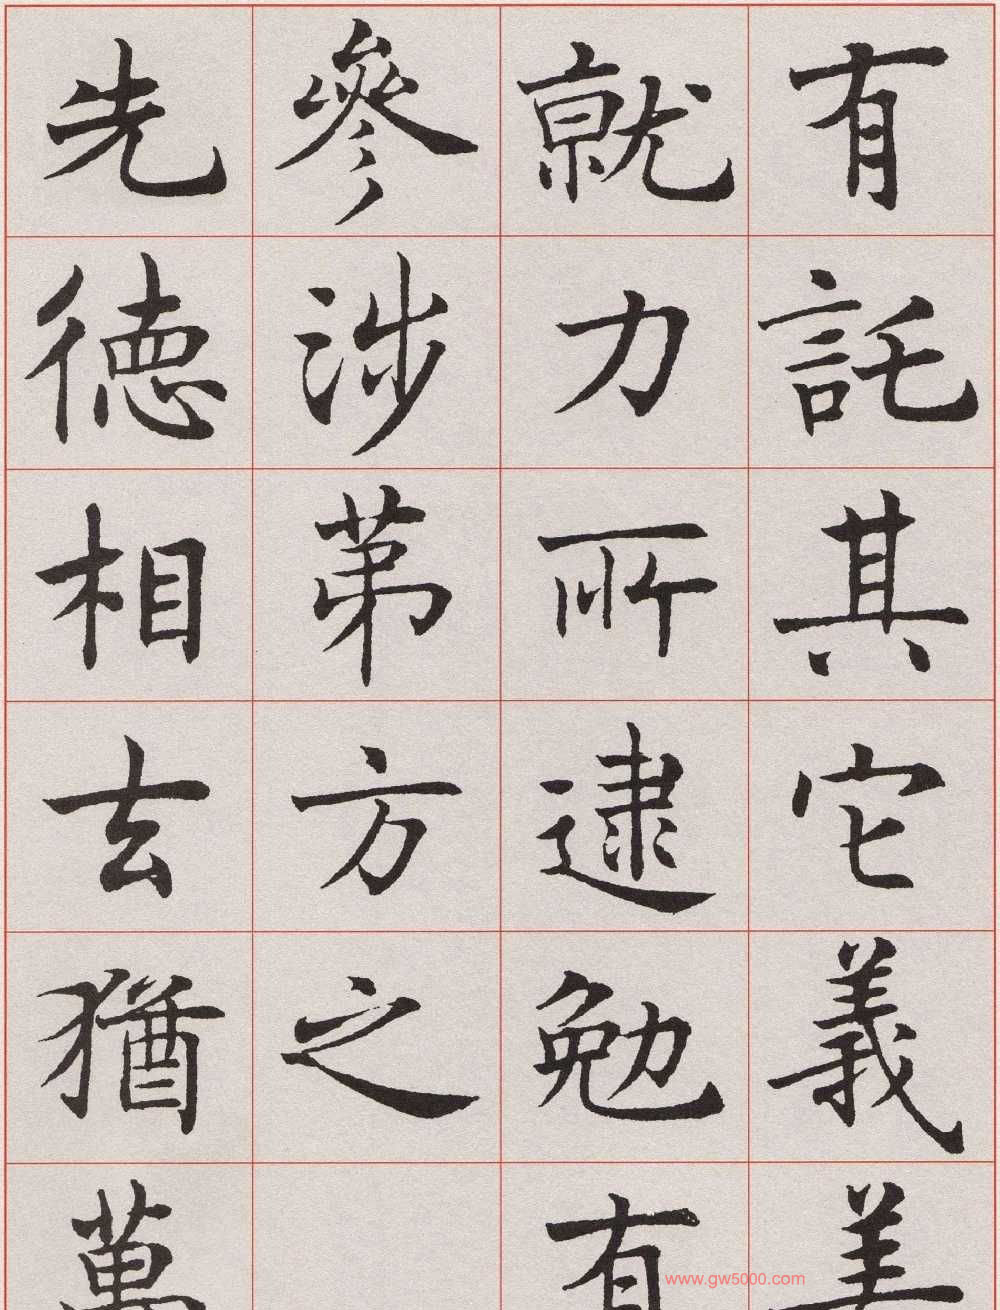 有託其它義美
就力所逮勉有
參涉苐方之
先德相去猶萬
www.gw5000.com